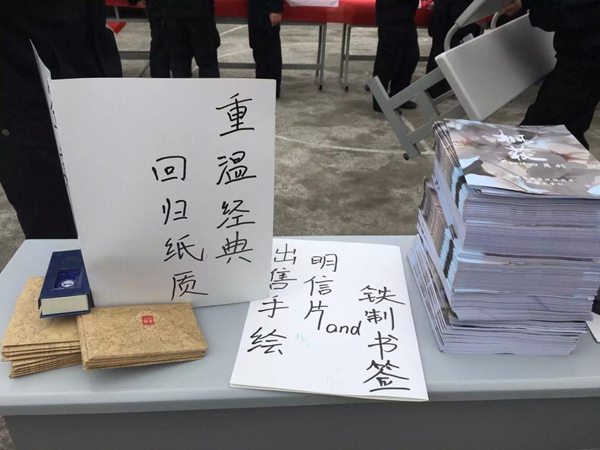 重温经典
回归纸质
出售手绘
明信片and
铁制书签